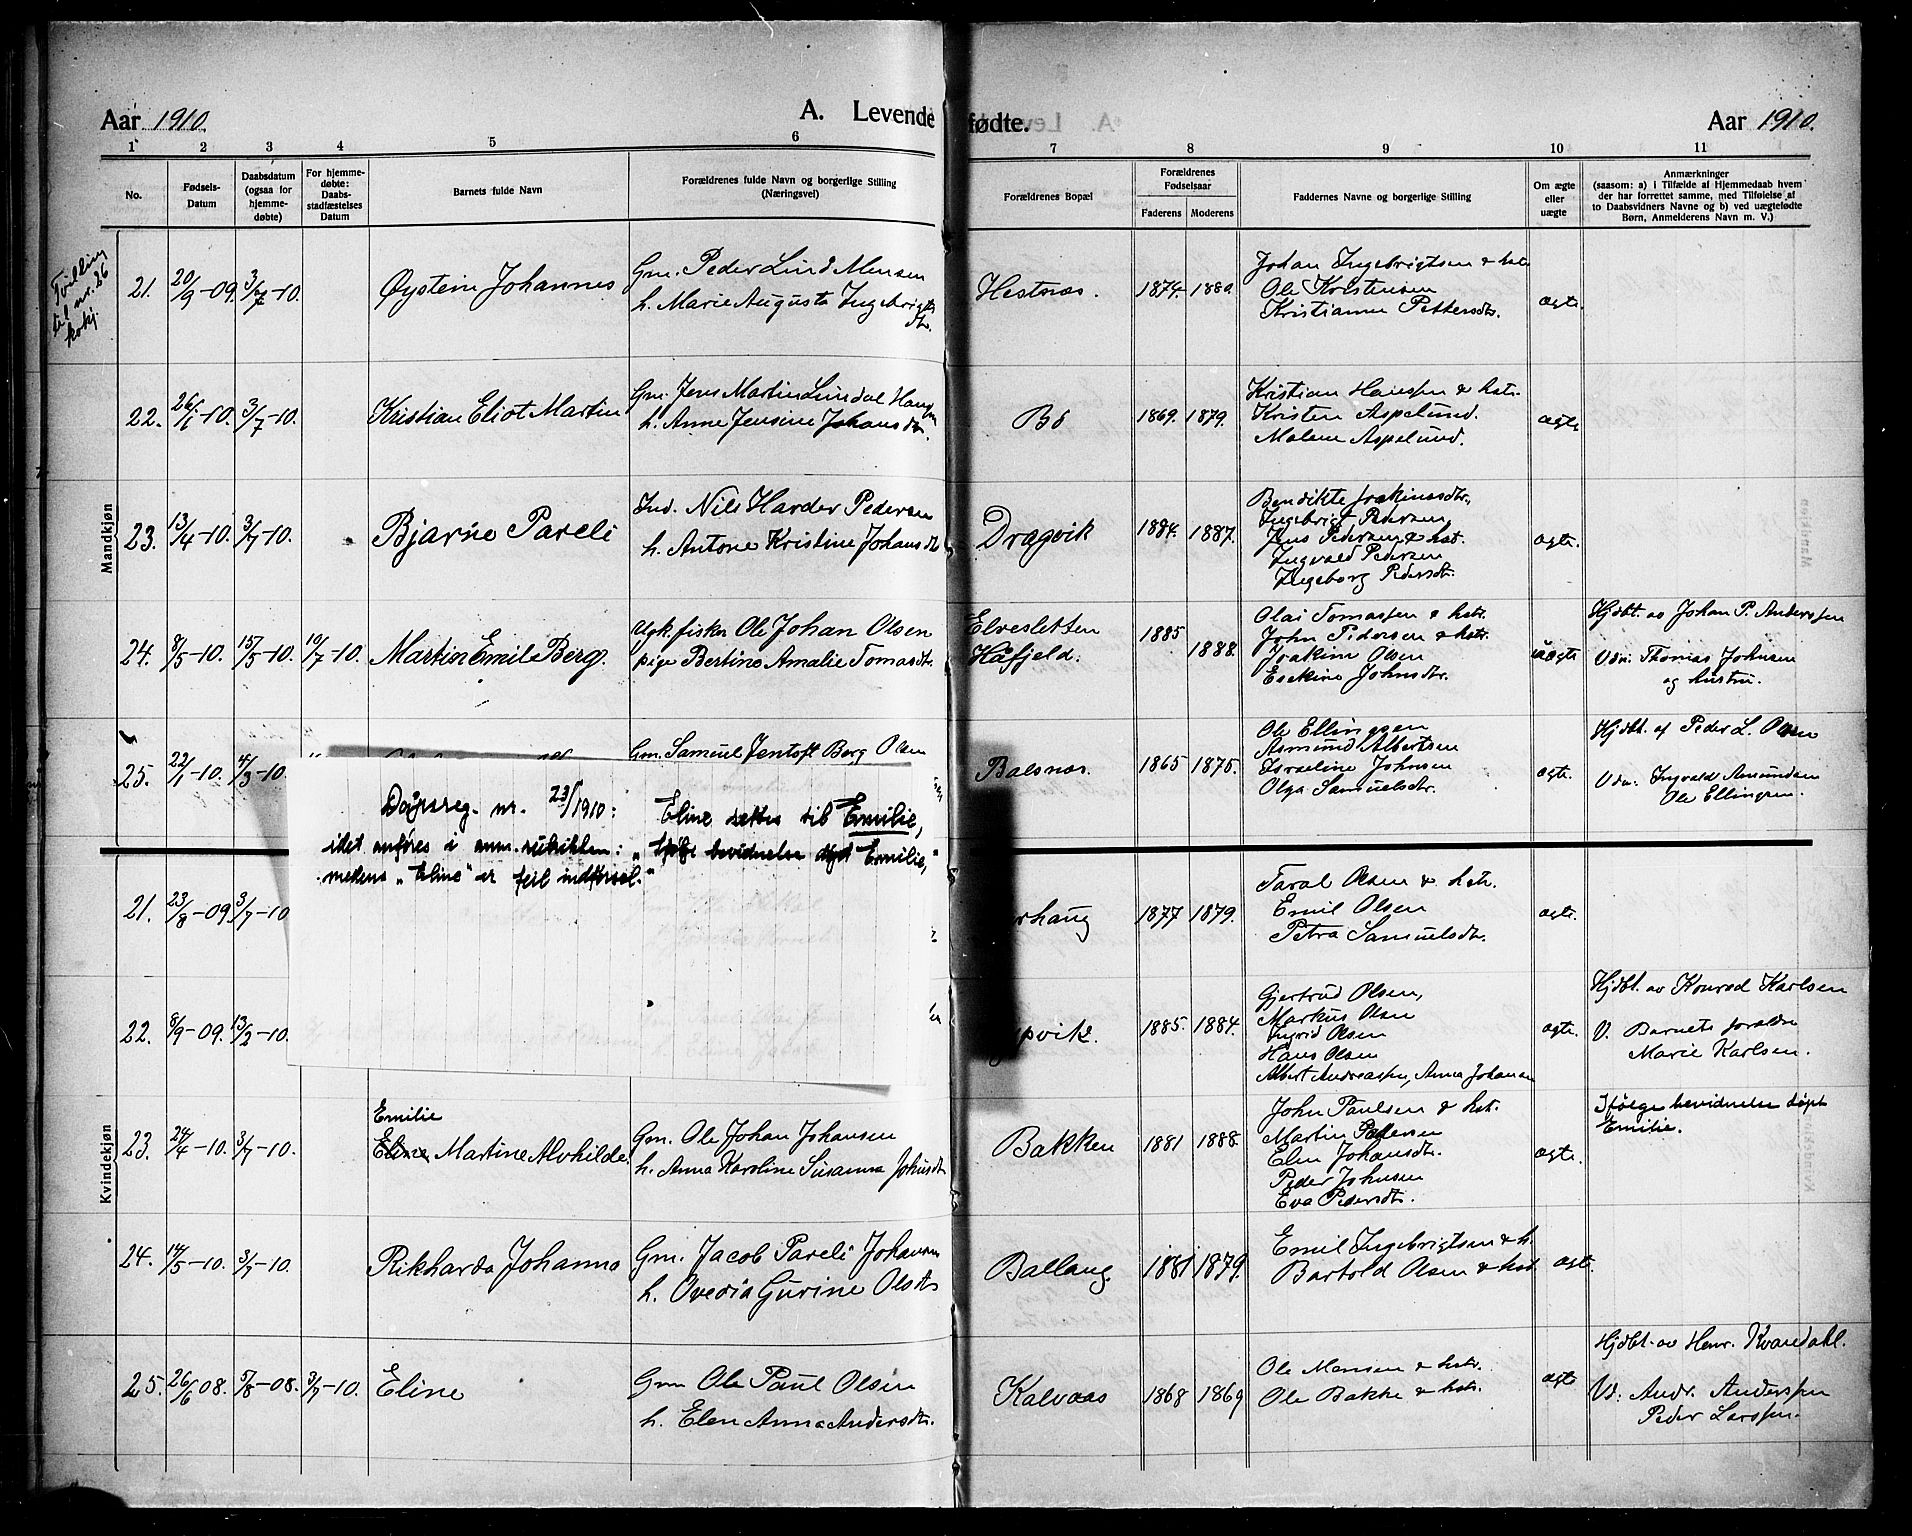 Aar 1910.
A. Levende fødte.
Aar 1910.
1 2 3 4 5 6 7 8 9 10 11
No.
Fødsels-
Datum
Daabsdatum
(ogsaa for
hjemme-
døbte)
For hjemme-
døbte:
Daabs-
stadfæstelses
Datum
Barnets fulde Navn
Forældrenes fulde Navn og borgerlige Stilling
(Næringsvei)
Forældrenes Bopæl
Forældrenes
Fødselsaar
Faderens Moderens
Faddernes Navne og borgerlige Stilling
Om ægte
eller
uægte
Anmærkninger
(saasom: a) i Tilfælde af Hjemmedaab hvem
der har forrettet samme, med Tilføielse af
to Daabsvidners Navne og b) ved uægtefødte
Børn, Anmelderens Navn m. V.)
Tvilling
til nr. 26
kvkj.
Mandkjøn
21. 20/9-09. 3/7-10. Øystein Johannes
Gm. Peder Lind Monsen
h. Marie Augusta Ingebrigts
dtr.
Hestnæs. 1874. 1880.
Johan Ingebrigtsen & hst
Ole Kristensen
Kristianne Pettersdtr.
ægte.
22. 26/1-10. 3/7-10. Kristian Eliot Martin
Gm. Jens Martin Lindal Hansen
h. Anne Jensine Johansdtr.
Bø 1869. 1879.
Kristian Hansen & hstr.
Kristen Aspelund.
Malene Aspelund.
ægte
23. 13/4-10. 3/7-10. Bjarne Pareli
Ind. Nils Harder Pedersen
h. Antone Kristine Johansdtr
Dragvik 1884. 1887.
Bendikte Joakimsdtr.,
Ingebrigt Pedersen,
Jens Pedersen & hst.
Ingvald Pedersen
Ingeborg Pedersdtr.
ægte.
24. 8/5-10. 15/5-10. 10/7-10. Martin Emil Berg.
Ugk. fisker Ole Johan Olsen
pige Bertine Amalie Tomasdtr.
Elvesletten
Håfjeld. 1885 1888.
Olai Tomassen & hstr.
John Pedersen & hstr.
Joakim Olsen
Esekine Johnsdtr.
uægte
Hjdbt. av Johan P. Anderssen
Vdn. Thomas Johnsen
og hustru.
25. 22/1-10. 4/3-10.
Gm. Samuel Jentoft Berg Olsen
Balsnæs. 1865 1875.
Ole Ellingsen
Asmund Albertsen
Israeline Johnsen
Olga Samuelsdtr.
ægte.
Hjdbt. af Peder L. Olsen
Vdn. Ingvald Amundsen
Ole Ellingsen.
Dåpsreg. nr. 23/1910: Eline rettes til Emilie,
idet anføres i anm.rubikken: "Ifølge bevidnelse døpt Emilie,"
medens "Eline" er feil indførsel."
Kvindekjøn
21. 23/8-09 3/7-10
rhaug 1877 1879.
Taral Olsen & hstr.
Emil Olsen
Petra Samuelsdtr.
ægte.
22. 8/9-09. 13/2-10.
pvik. 1885. 1884.
Gjertrud Olsen,
Markus Olsen
Ingrid Olsen
Hans Olsen
Albert Andreassen, Anna Johansen
ægte.
Hjdbt. av Konrad Karlsen
V. Barnets foreldre
Marie Karlsen.
23. 24/4-10. 3/7-10.
Emilie
Eline Martine Alvhilde.
Gm. Ole Johan Johansen
h. Anna Karoline Susanna Johnsdtr
Bakken 1881 1888.
John Paulsen & hst.
Martin Pedersen
Elen Johansdtr.
Peder Johnsen
Eva Pedersdtr.
ægte.
Ifølge bevidnelse døpt
Emilie.
24. 14/5-10. 3/7-10. Rikharda Johanna
Gm. Jacob Pareli Johansen
h. Ovedia Gurine Olsdtr
Ballang. 1881 1879.
Emil Ingebrigtsen & h.
Bartold Olsen & hst.
ægt.
25. 26/6 08. 5/8-08. 3/7-10. Eline
Gm Ole Paul Olsen
h. Elen Anna Andersdtr.
Kalvaas 1868 1869
Ole Monsen & hstr.
Ole Bakke & hstr.
ægte
Hjdbt. av Henr. Kvandahl.
Vd. Andr. Anderssen
Peder Larssen.